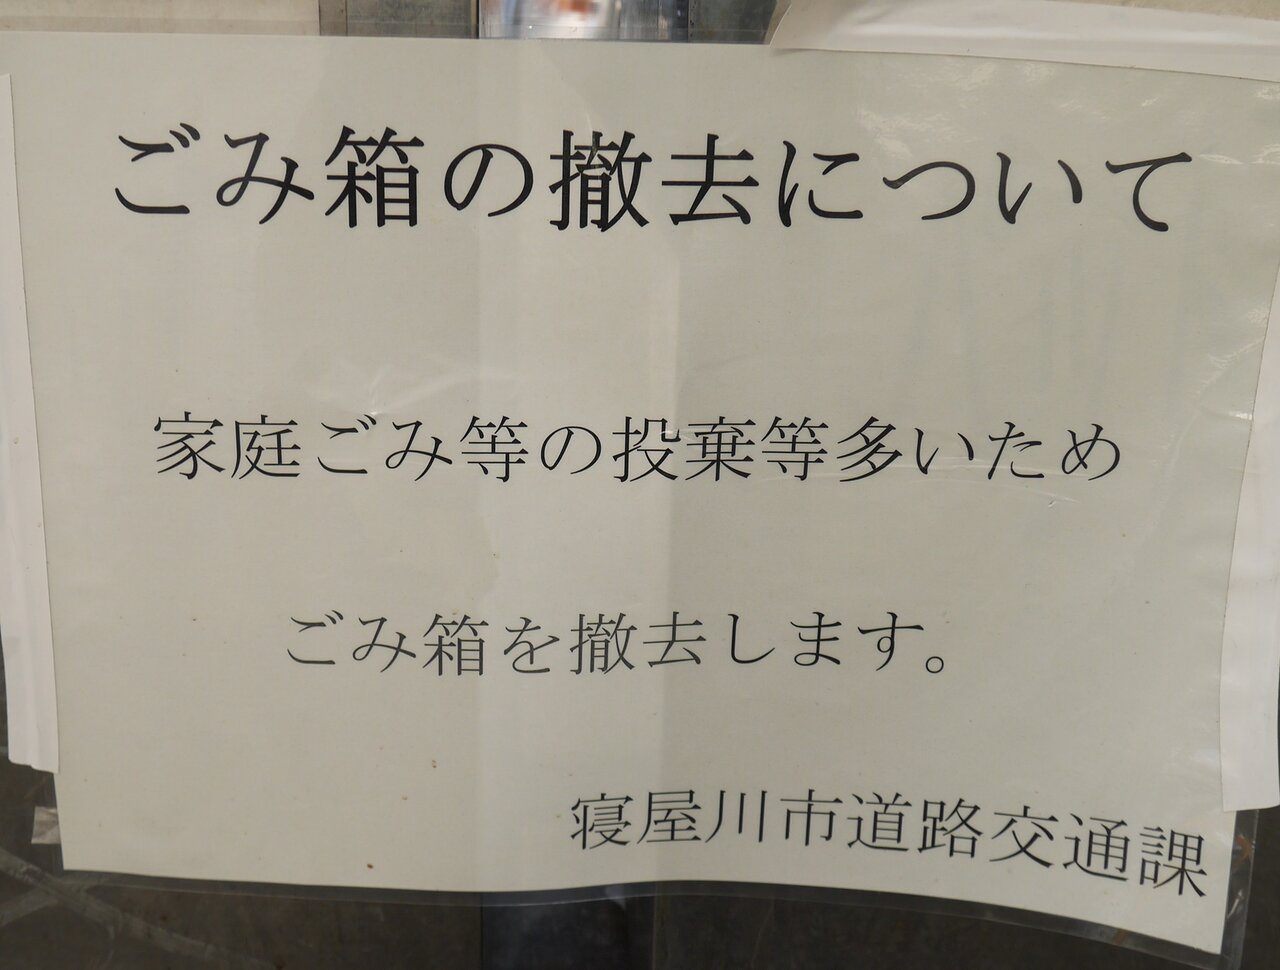 ごみ箱の撤去について
家庭ごみ等の投棄等多いため
ごみ箱を撤去します。
寝屋川市道路交通課